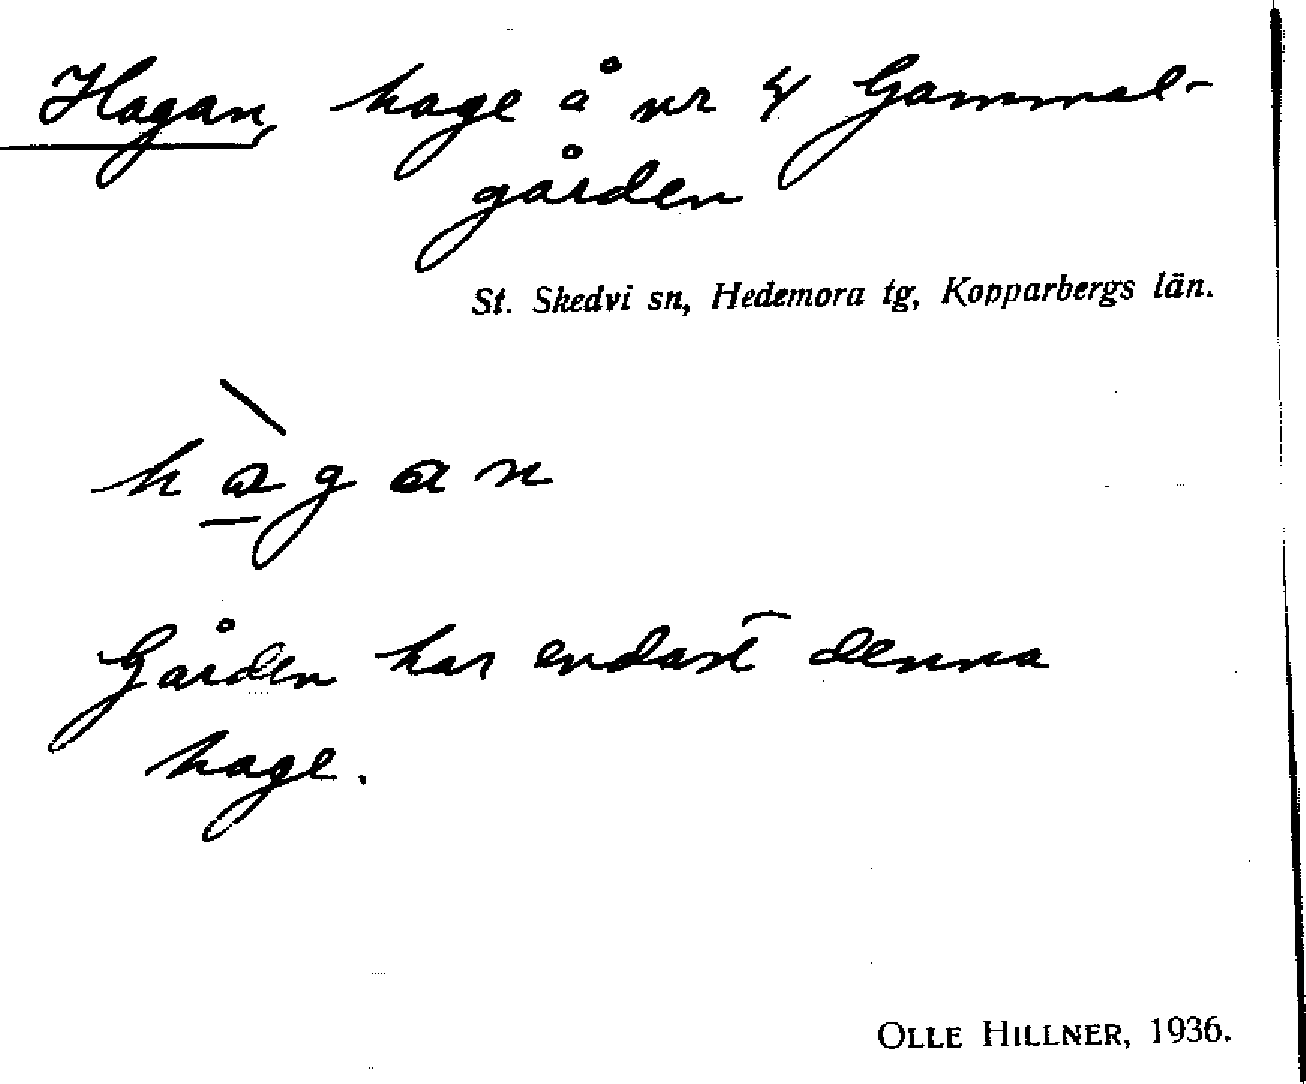 Hagan, hage å nr 4 Gammal-
gården
St. Skedvi sn, Hedemora tg, Kopparbergs län.
hàgan
Gården har endast denna
hage.
OLLE HILLNER, 1936.